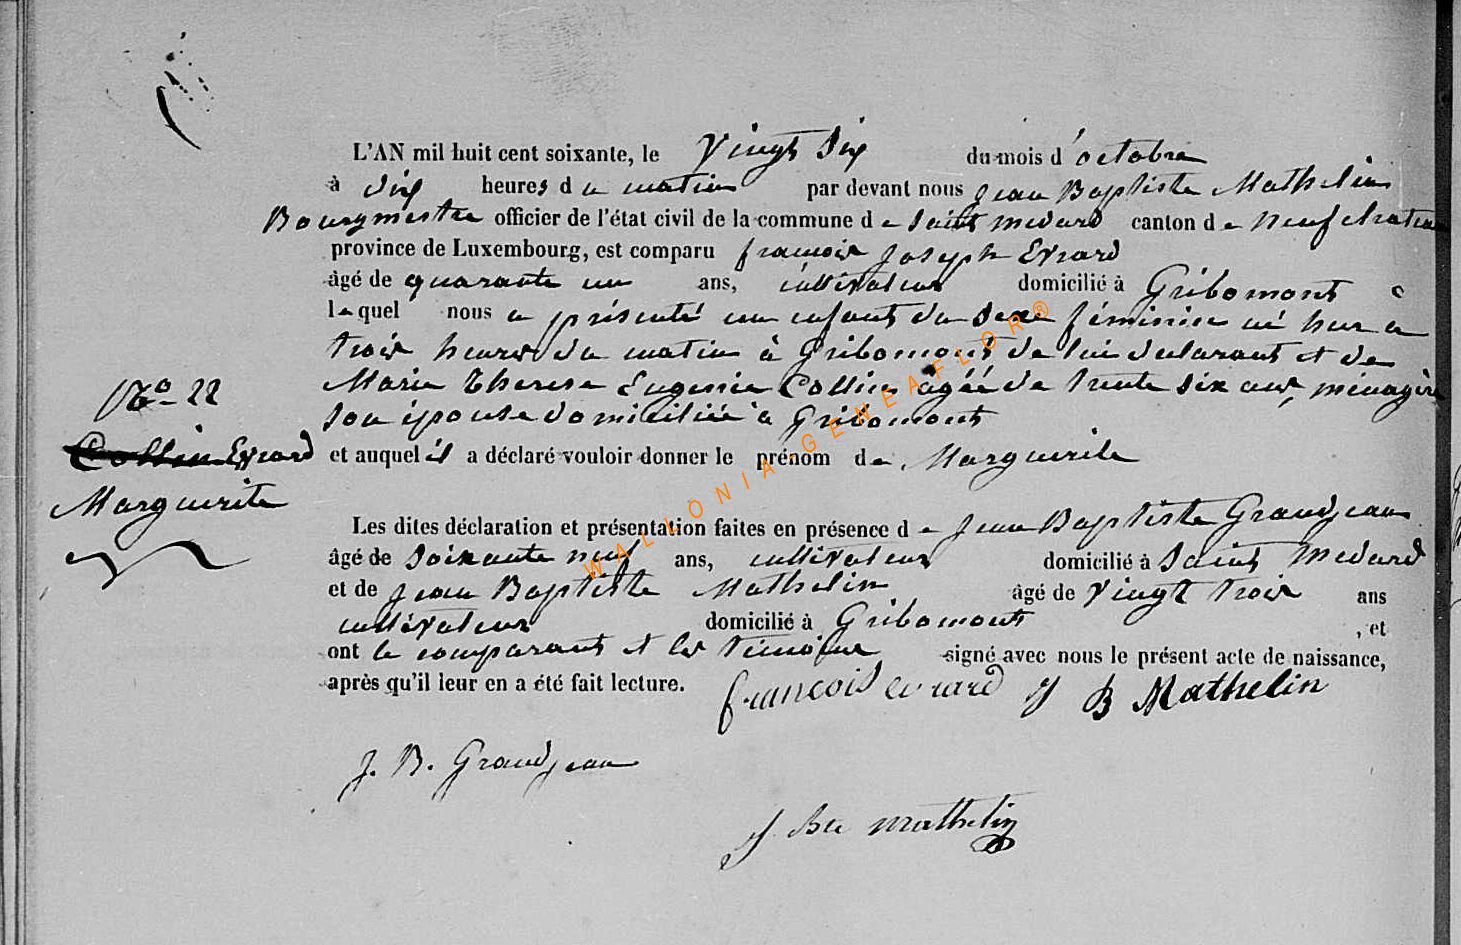 L'AN mil huit cent soixante, le Vingt Six du mois d'octobre
à dix heures du matin par devant nous Jean Baptiste Mathelin
Bourgmestre officier de l'état civil de la commune de Saint Medard canton de Neufchateau
province de Luxembourg, est comparu francois Joseph Evrard
âgé de quarante un ans, cultivateur domicilié à Gribomont
lequel nous a présenté un enfant du Sexe féminin né hier à
trois heures du matin à Gribomont de lui déclarant et de
Marie Therese Eugenie Collin agéé de trente Six ans, ménagère
Son épouse domiciliée à Gribomont
N° 22
Collin Evrard
Marguerite
et auquel il a déclaré vouloir donner le prénom de Marguerite
Les dites déclaration et présentation faites en présence de Jean Baptiste Grandjean
âgé de Soixante neuf ans, cultivateur domicilié à Saint Medard
et de Jean Baptiste Mathelin âgé de Vingt trois ans
cultivateur domicilié à Gribomont , et
ont le comparant et les témoins signé avec nous le présent acte de naissance,
après qu'il leur en a été fait lecture.
francois evrard J B Mathelin
J. B. Grandjean
J. Bte Mathelin
WALLONIA-GENEAFLOR®